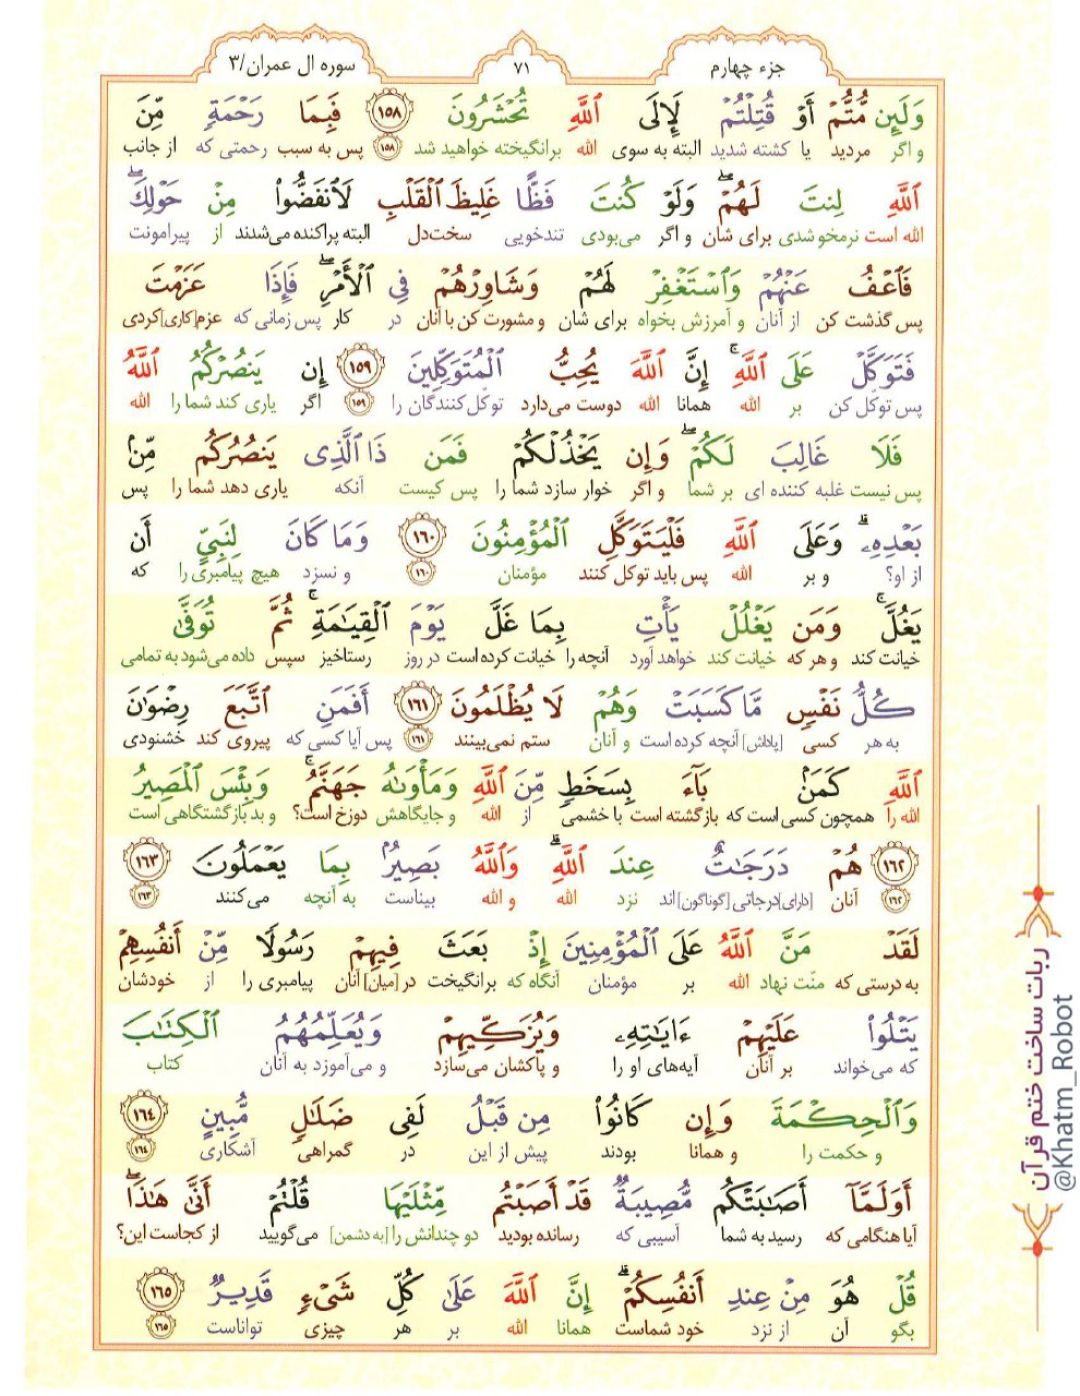 جزء چهارم
۷۱
سوره ال عمران/۳
وَلَئِن مُّتُّمْ أَوْ قُتِلْتُمْ لَإِلَى ٱللَّهِ تُحْشَرُونَ ١٥٨ فَبِمَا رَحْمَةٍ مِّنَ
و اگر مردید یا کشته شدید البته به سوی الله برانگیخته خواهید شد ۱۵۸ پس به سبب رحمتی که از جانب
ٱللَّهِ لِنتَ لَهُمْ ۖ وَلَوْ كُنتَ فَظًّا غَلِيظَ ٱلْقَلْبِ لَٱنفَضُّوا۟ مِنْ حَوْلِكَ ۖ
الله است نرمخو شدی برای شان و اگر می‌بودی تندخویی سخت‌دل البته پراکنده می‌شدند از پیرامونت
فَٱعْفُ عَنْهُمْ وَٱسْتَغْفِرْ لَهُمْ وَشَاوِرْهُمْ فِى ٱلْأَمْرِ ۖ فَإِذَا عَزَمْتَ
پس گذشت کن از آنان و آمرزش بخواه برای شان و مشورت کن با آنان در کار پس زمانی که عزم[کاری]کردی
فَتَوَكَّلْ عَلَى ٱللَّهِ ۚ إِنَّ ٱللَّهَ يُحِبُّ ٱلْمُتَوَكِّلِينَ ١٥٩ إِن يَنصُرْكُمُ ٱللَّهُ
پس توکل کن بر الله همانا الله دوست می‌دارد توکل‌کنندگان را ۱۵۹ اگر یاری کند شما را الله
فَلَا غَالِبَ لَكُمْ ۖ وَإِن يَخْذُلْكُمْ فَمَن ذَا ٱلَّذِى يَنصُرُكُم مِّنۢ
پس نیست غلبه کننده ای بر شما و اگر خوار سازد شما را پس کیست آنکه یاری دهد شما را پس
بَعْدِهِۦ ۗ وَعَلَى ٱللَّهِ فَلْيَتَوَكَّلِ ٱلْمُؤْمِنُونَ ١٦٠ وَمَا كَانَ لِنَبِىٍّ أَن
از او؟ و بر الله پس باید توکل کنند مؤمنان ۱۶۰ و نسزد هیچ پیامبری را که
يَغُلَّ ۚ وَمَن يَغْلُلْ يَأْتِ بِمَا غَلَّ يَوْمَ ٱلْقِيَـٰمَةِ ۚ ثُمَّ تُوَفَّىٰ
خیانت کند و هر که خیانت کند خواهد آورد آنچه را خیانت کرده است در روز رستاخیز سپس داده می‌شود به تمامی
كُلُّ نَفْسٍ مَّا كَسَبَتْ وَهُمْ لَا يُظْلَمُونَ ١٦١ أَفَمَنِ ٱتَّبَعَ رِضْوَٰنَ
به هر کسی [پاداش] آنچه کرده است و آنان ستم نمی‌بینند ۱۶۱ پس آیا کسی که پیروی کند خشنودی
ٱللَّهِ كَمَنۢ بَآءَ بِسَخَطٍ مِّنَ ٱللَّهِ وَمَأْوَىٰهُ جَهَنَّمُ ۚ وَبِئْسَ ٱلْمَصِيرُ
الله را همچون کسی است که بازگشته است با خشمی از الله و جایگاهش دوزخ است؟ و بد بازگشتگاهی است
١٦٢ هُمْ دَرَجَـٰتٌ عِندَ ٱللَّهِ ۗ وَٱللَّهُ بَصِيرٌۢ بِمَا يَعْمَلُونَ ١٦٣
۱۶۲ آنان [دارای]درجاتی [گوناگون]اند نزد الله و الله بیناست به آنچه می‌کنند ۱۶۳
لَقَدْ مَنَّ ٱللَّهُ عَلَى ٱلْمُؤْمِنِينَ إِذْ بَعَثَ فِيهِمْ رَسُولًا مِّنْ أَنفُسِهِمْ
به درستی که منّت نهاد الله بر مؤمنان آنگاه که برانگیخت در[میان]آنان پیامبری را از خودشان
يَتْلُوا۟ عَلَيْهِمْ ءَايَـٰتِهِۦ وَيُزَكِّيهِمْ وَيُعَلِّمُهُمُ ٱلْكِتَـٰبَ
که می‌خواند بر آنان آیه‌های او را و پاکشان می‌سازد و می‌آموزد به آنان کتاب
وَٱلْحِكْمَةَ وَإِن كَانُوا۟ مِن قَبْلُ لَفِى ضَلَـٰلٍ مُّبِينٍ ١٦٤
و حکمت را و همانا بودند پیش از این در گمراهی آشکاری ۱۶۴
أَوَلَمَّآ أَصَـٰبَتْكُم مُّصِيبَةٌ قَدْ أَصَبْتُم مِّثْلَيْهَا قُلْتُمْ أَنَّىٰ هَـٰذَا ۖ
آیا هنگامی که رسید به شما آسیبی که رسانده بودید دو چندانش را[به دشمن] می‌گویید از کجاست این؟
قُلْ هُوَ مِنْ عِندِ أَنفُسِكُمْ ۗ إِنَّ ٱللَّهَ عَلَىٰ كُلِّ شَىْءٍ قَدِيرٌ ١٦٥
بگو آن از نزد خود شماست همانا الله بر هر چیزی تواناست ۱۶۵
ربات ساخت ختم قرآن
@Khatm_Robot